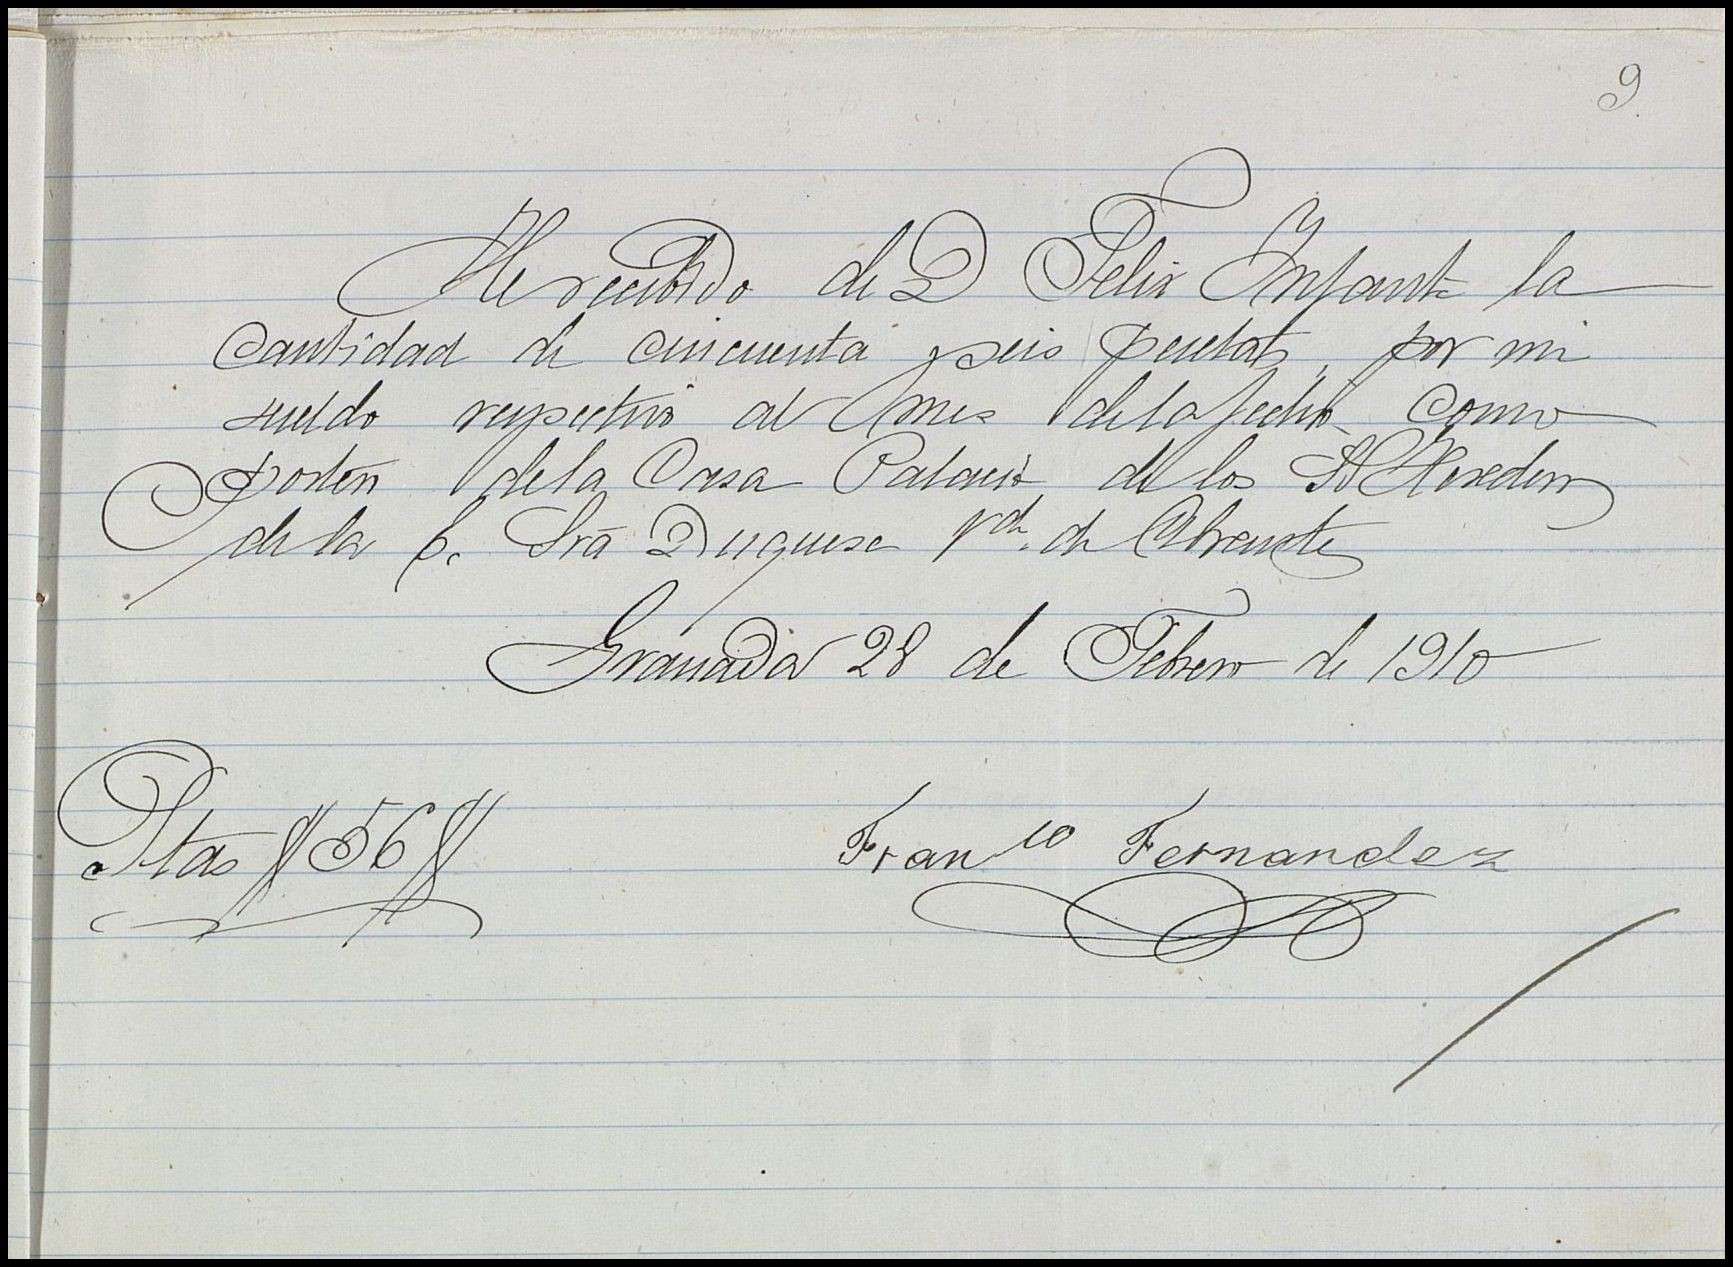 9
He recibido de D Felix Infante la
Cantidad de cincuenta y seis pesetas, por mi
sueldo respectivo al mes de la fecha como
portero de la Casa Palacio de los SS Herederos
de la E. Srã Duquesa Vdª. de Abrantes
Granada 28 de Febrero de 1910
Ptas 56
Franco Fernandez